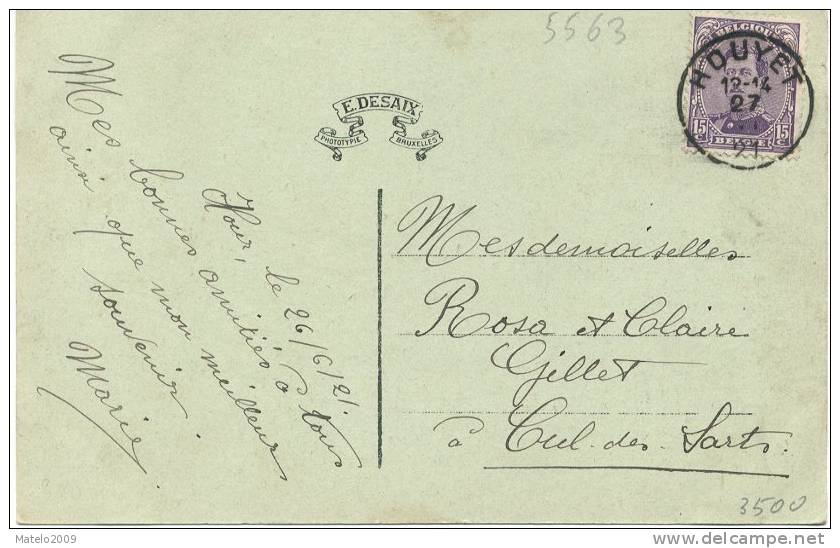 5563
BELGIQUE
HOUYET
12-14
27
VI
21
15 c
15 c
BELGIE
E. DESAIX
PHOTOTYPIE
BRUXELLES
Hour, le 26/6/21.
Mes bonnes amitiés à tous
ainsi que mon meilleur
souvenir.
Marie.
Mesdemoiselles
Rosa et Claire
Gillet
à Cul-des-Sarts.
3500
Matelo2009
www.delcampe.net